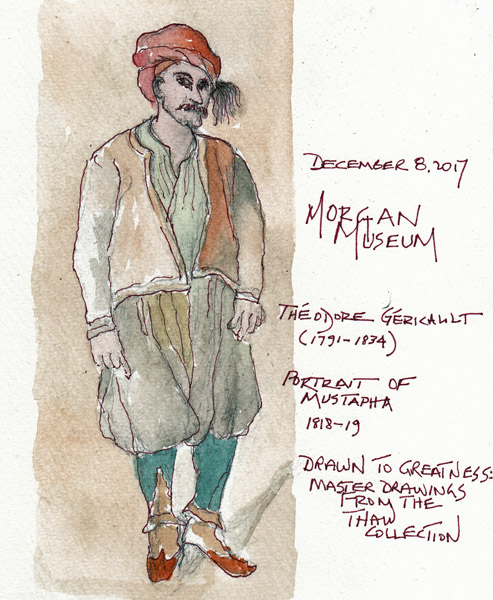 DECEMBER 8, 2017
MORGAN
MUSEUM
THÉODORE GÉRICAULT
(1791-1834)
PORTRAIT OF
MUSTAPHA
1818-19
DRAWN TO GREATNESS:
MASTER DRAWINGS
FROM THE
THAW
COLLECTION